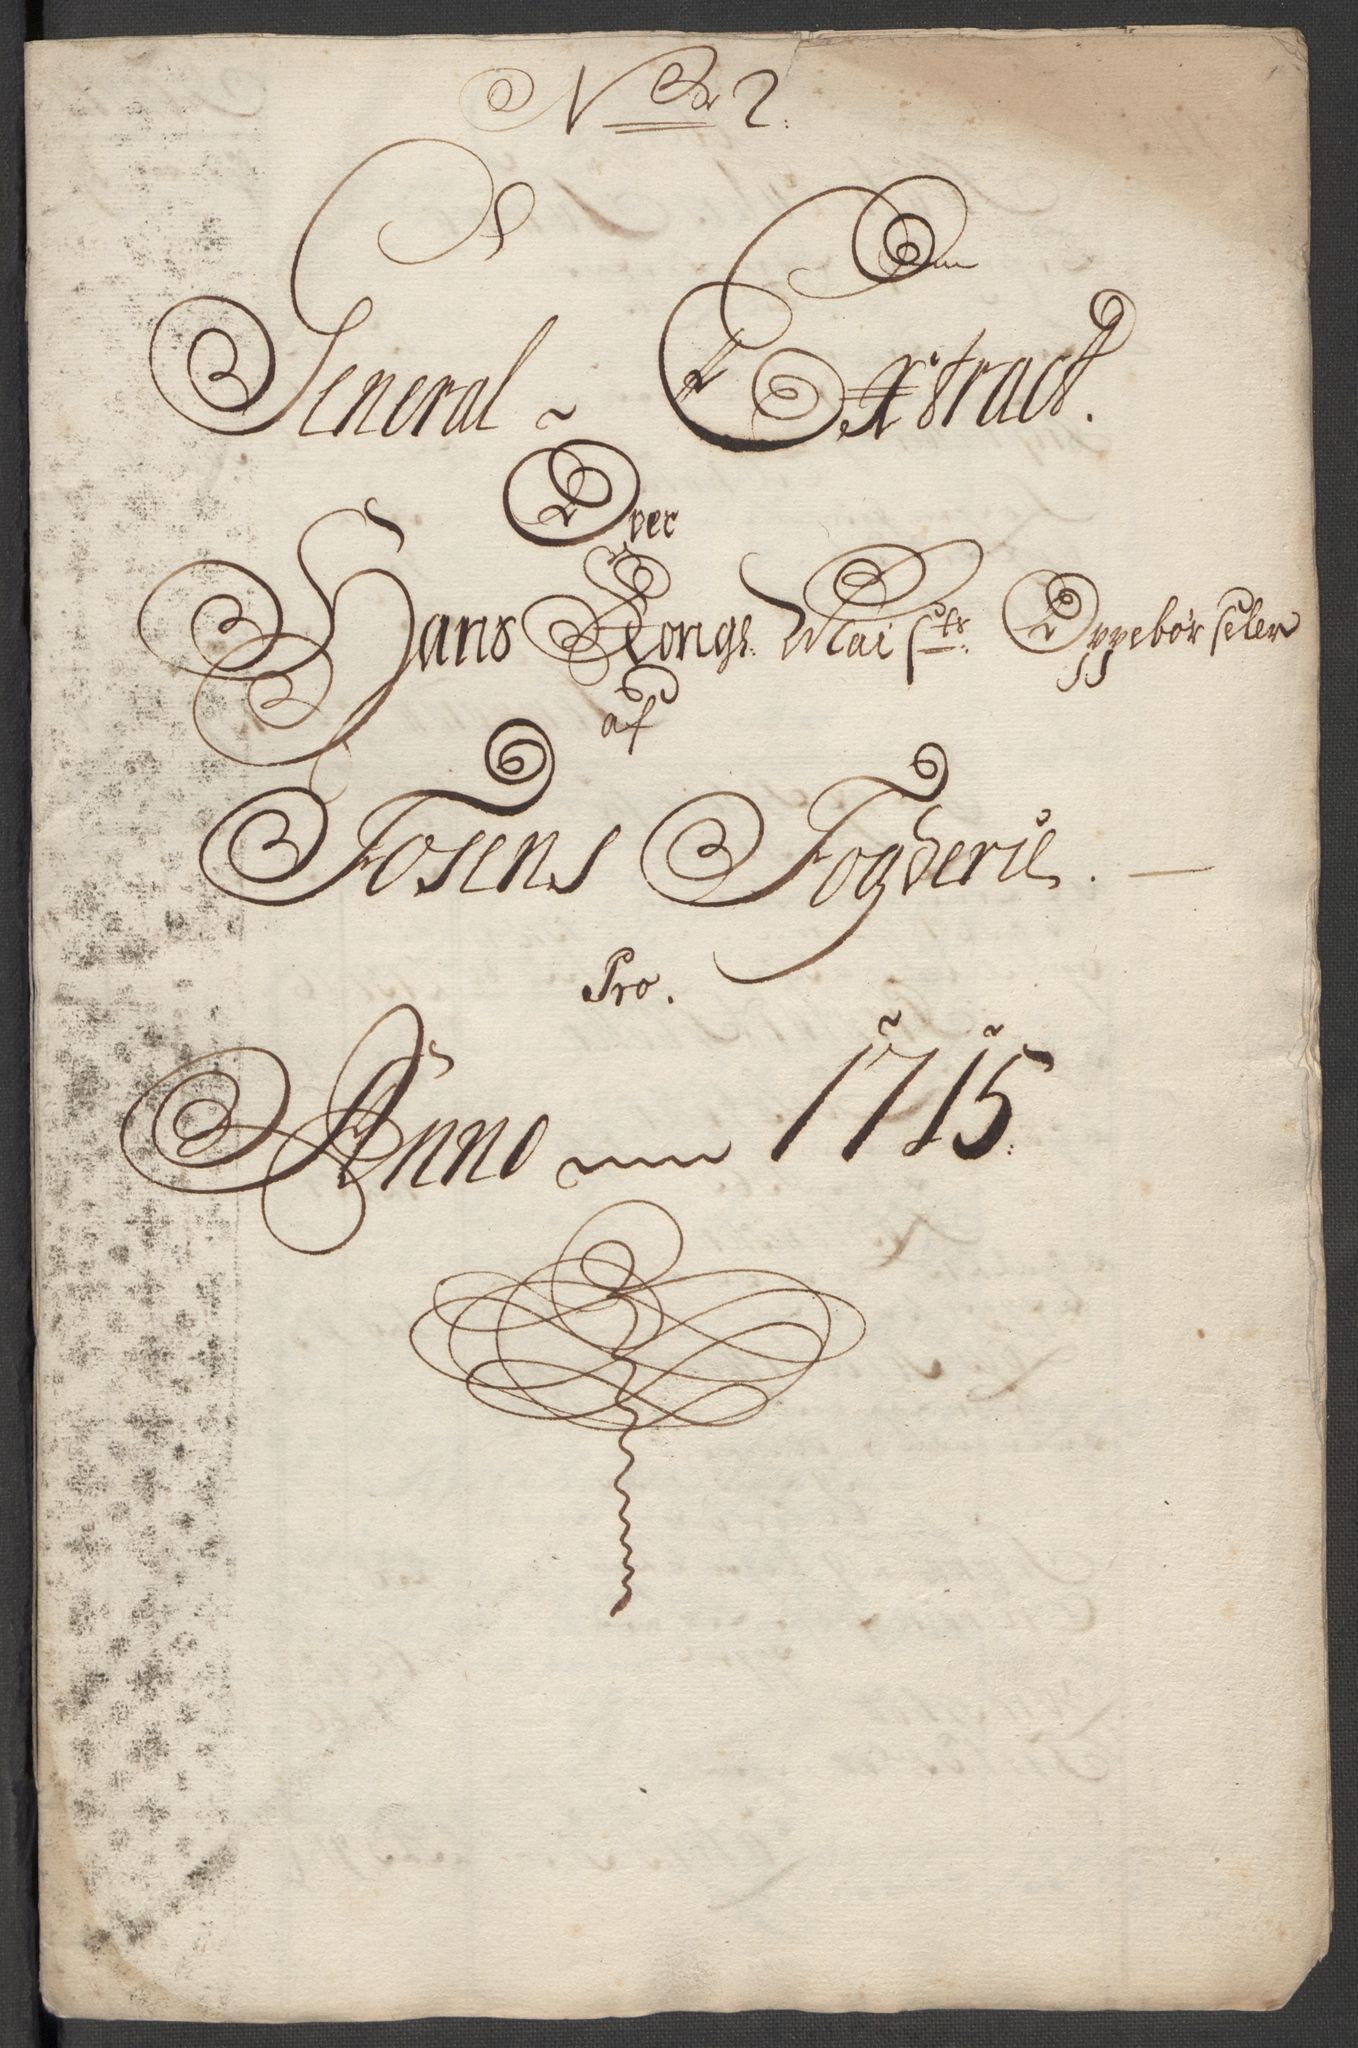 No 2.
General ~ Extract.
Over
Hans Kongl. Mai sts. Oppebørseler
af
Fosens Fogderie. —
Pro.
Anno 1715.